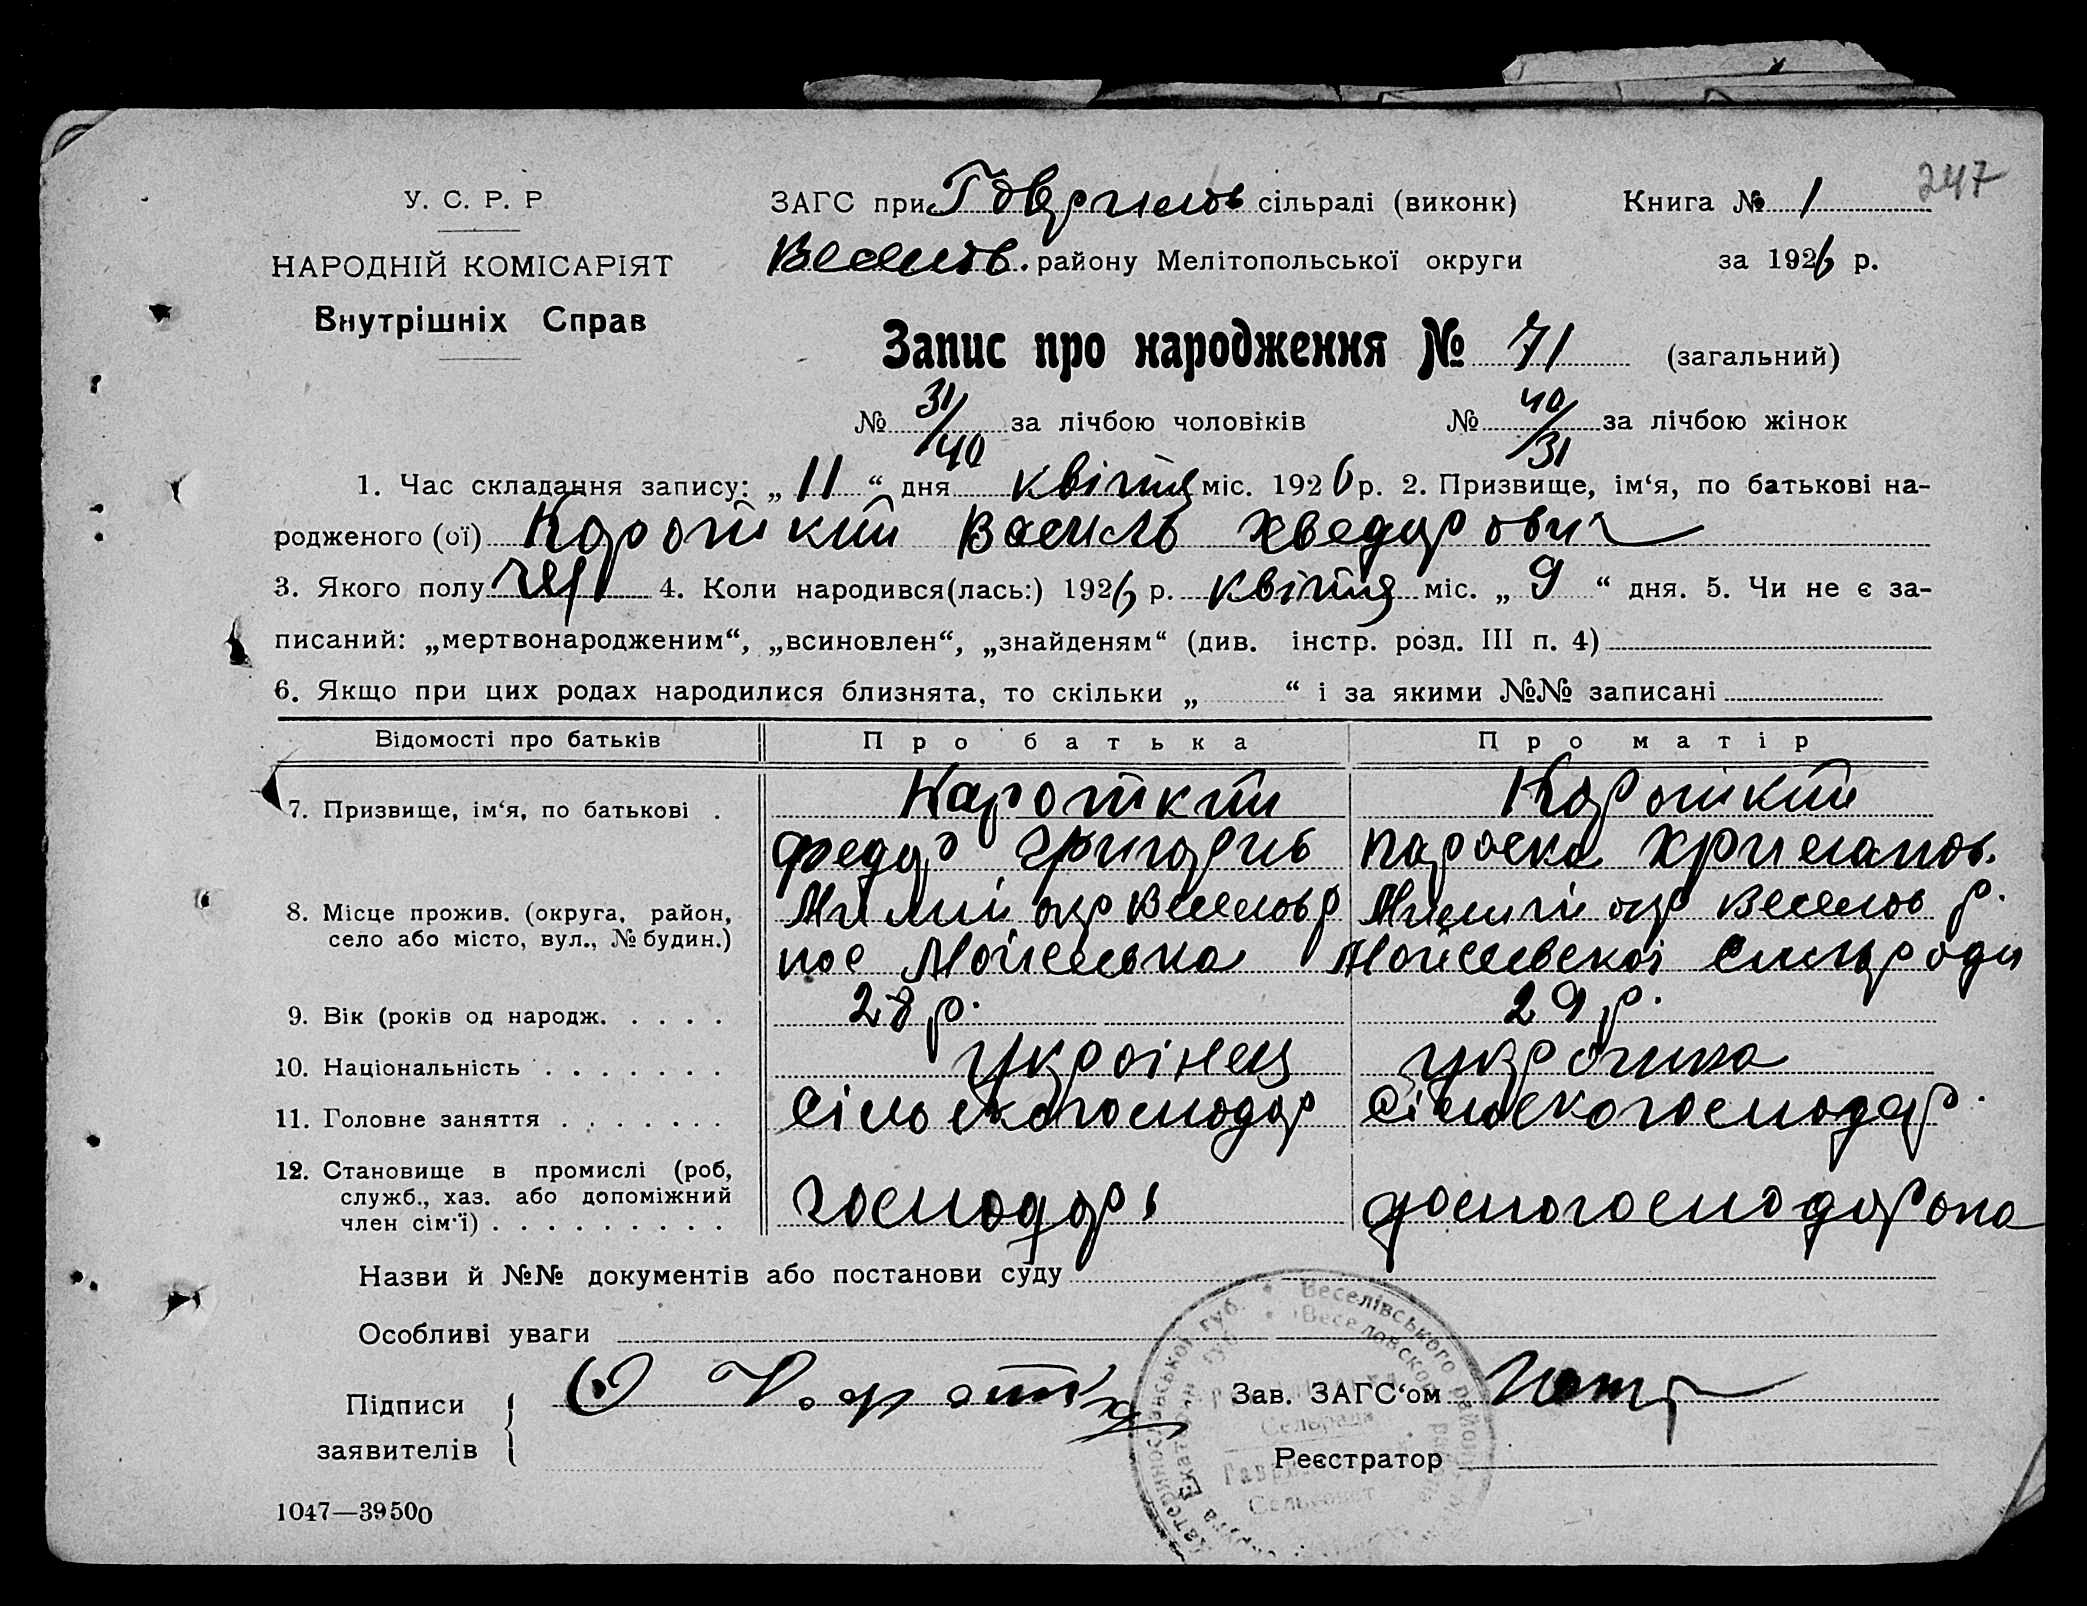 247
У. С. Р. Р
НАРОДНІЙ КОМІСАРІЯТ
Внутрішніх Справ
ЗАГС при Гаврилов сільраді (виконк) Книга № 1
Веселов. району Мелітопольської округи за 1926 р.
Запис про народження № 71 (загальний)
№ 31/40 за лічбою чоловіків № 40/31 за лічбою жінок
1. Час складання запису: „ 11 “ дня квітня міс. 1926 р. 2. Призвище, ім‘я, по батькові на-
родженого (ої) Короткий Василь Хведорович
3. Якого полу чол 4. Коли народився(лась:) 1926 р. квітня міс. „ 9 “ дня. 5. Чи не є за-
писаний: „мертвонародженим“, „всиновлен“, „знайденям“ (див. інстр. розд. III п. 4)
6. Якщо при цих родах народилися близнята, то скільки „ “ і за якими №№ записані
Відомості про батьків Про батька Про матір
7. Призвище, ім‘я, по батькові . Короткий Короткий
Федор Григорів Параска
8. Місце прожив. (округа, район, окр Веселов р окр Веселов р.
село або місто, вул., № будин.) пос
9. Вік (років од народж. . . . . 28 р. 29 р.
10. Національність . . . . . . . Українец україика
11. Головне заняття . . . . . . . Сільськогосподар Сільськогосподар.
12. Становище в промислі (роб,
служб., хаз. або допоміжний господарь
член сім‘ї) . . . . . . . . .
Назви й №№ документів або постанови суду
Особливі уваги
Підписи
заявителів
Зав. ЗАГС‘ом
Реєстратор
Веселівського району
Сельрада
Сельсовет
1047—39500